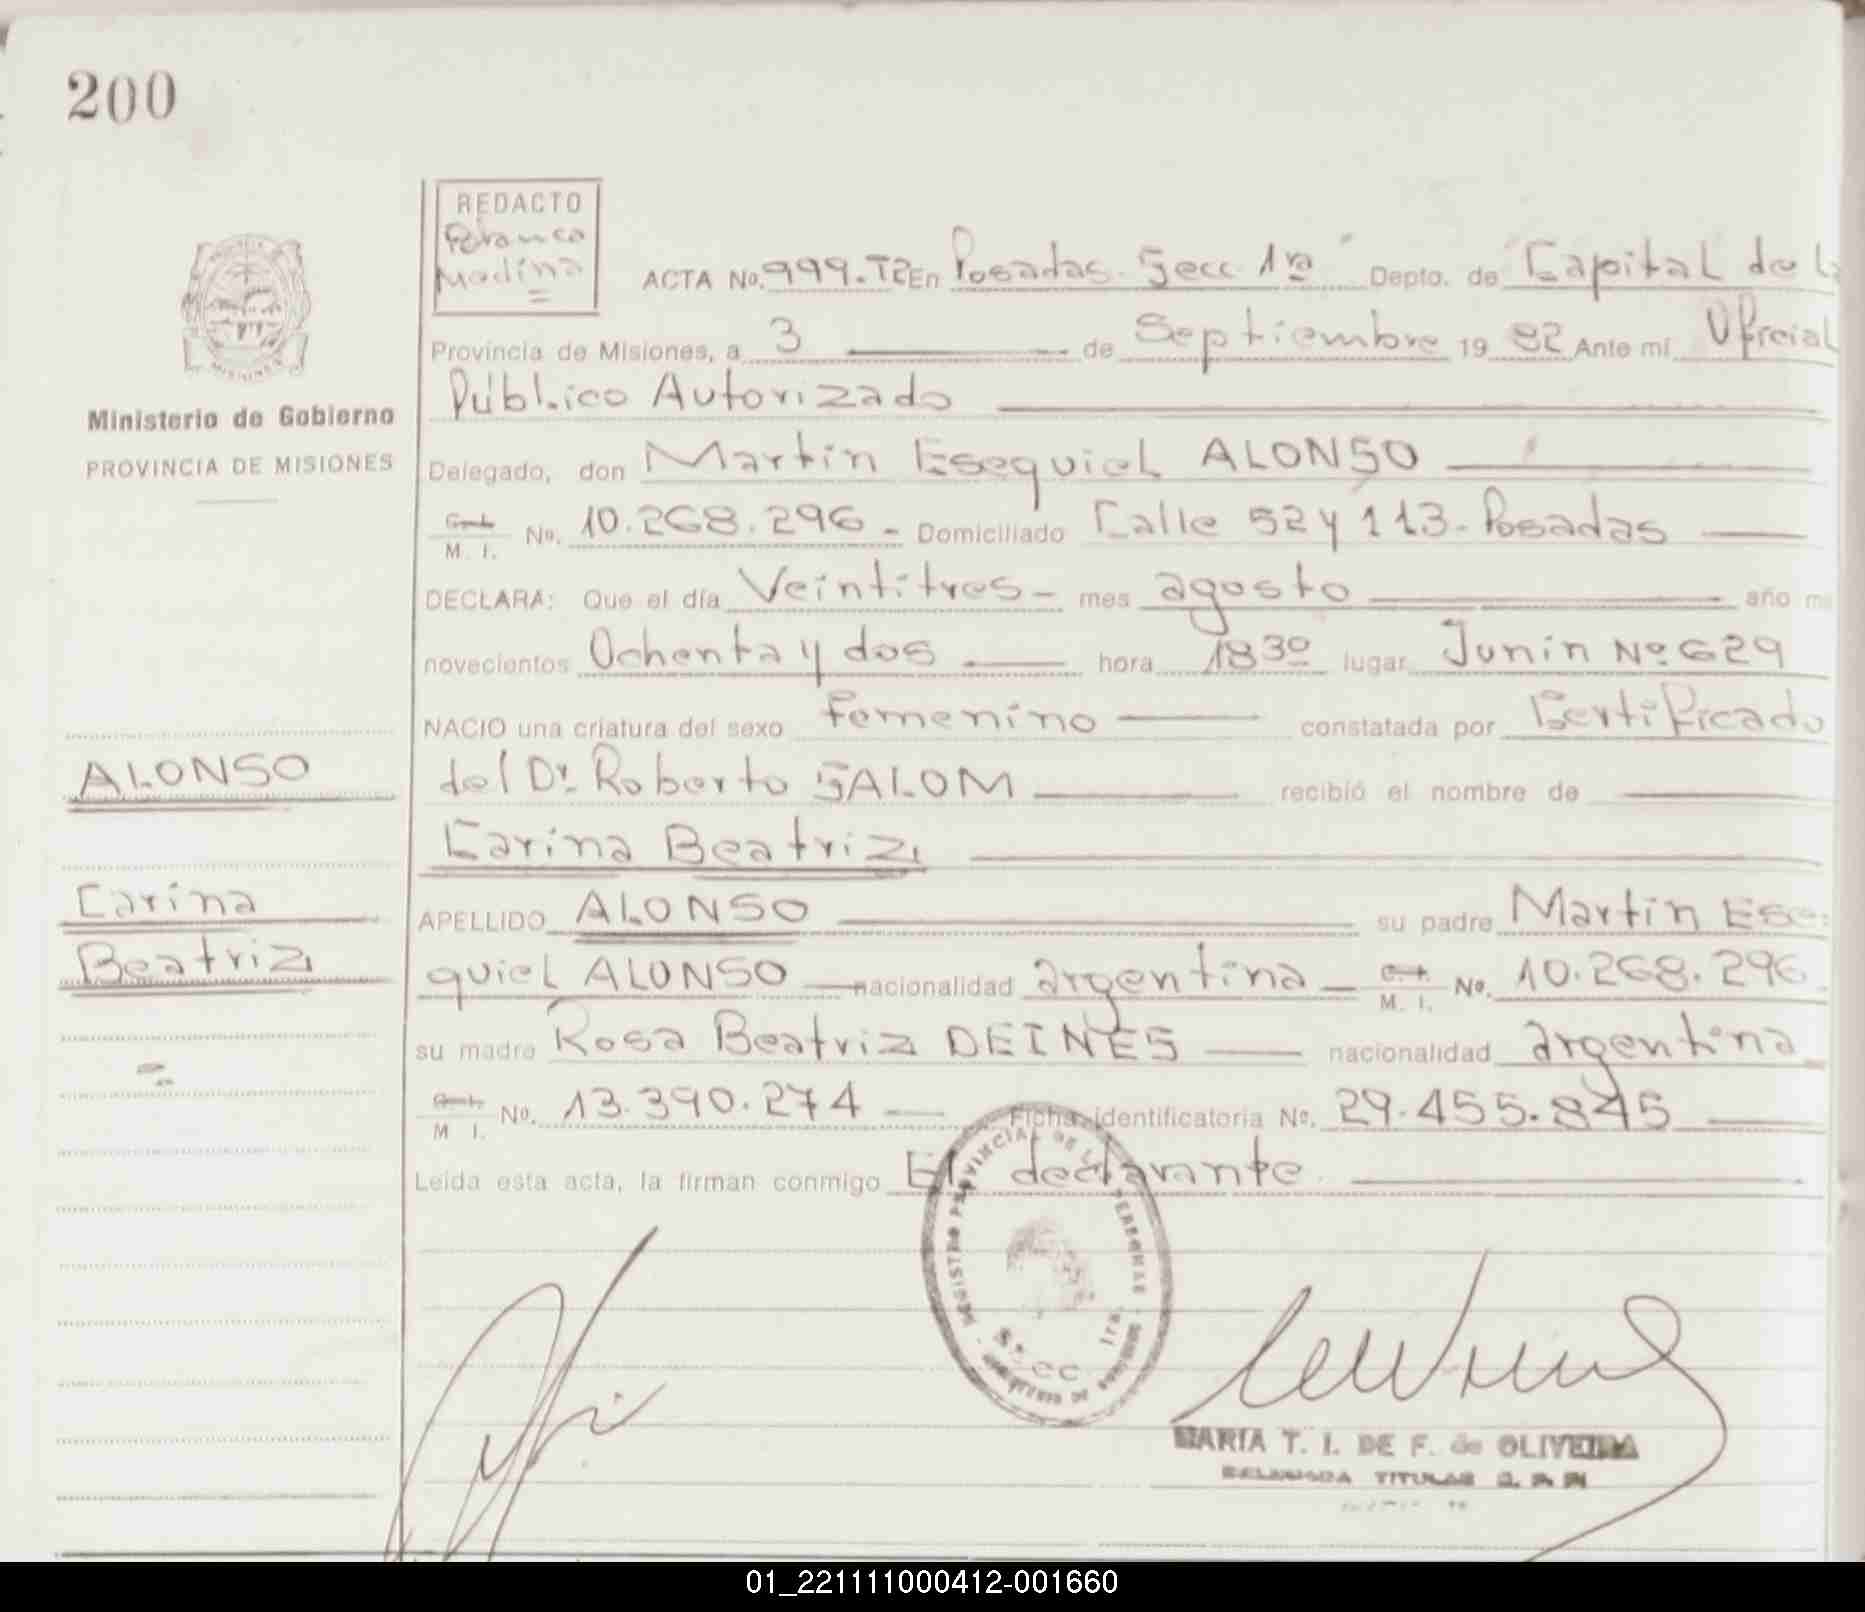 200
REDACTO
Medina
ACTA No. 999. T2 En Posadas. Secc. 1ra Depto. de Capital de la
Provincia de Misiones, a 3 de Septiembre 19 82 Ante mi Oficial
Público Autorizado
Ministerio de Gobierno
PROVINCIA DE MISIONES
Delegado, don Martín Esequiel ALONSO
M. I. No. 10.268.296 - Domiciliado Calle 52 y 113 - Posadas
DECLARA: Que el día Veintitres - mes agosto año mi
novecientos Ochenta y dos hora 18 30 lugar Junín Nº 629
NACIO una criatura del sexo femenino constatada por Certificado
del Dr. Roberto SALOM recibió el nombre de
Carina Beatriz
APELLIDO ALONSO su padre Martín Ese-
quiel ALONSO nacionalidad argentina - M. I. No. 10.268.296
su madre Rosa Beatriz DEINES nacionalidad argentina
M I. No. 13.390.274 Ficha identificatoria No. 29.455.845
Leída esta acta, la firman conmigo El declarante.
ALONSO
Carina
Beatriz
REGISTRO PROVINCIAL DE LAS PERSONAS
SECC 1ra.
MARIA T. I. DE F. de OLIVEIRA
DELEGADA TITULAR
01_221111000412-001660